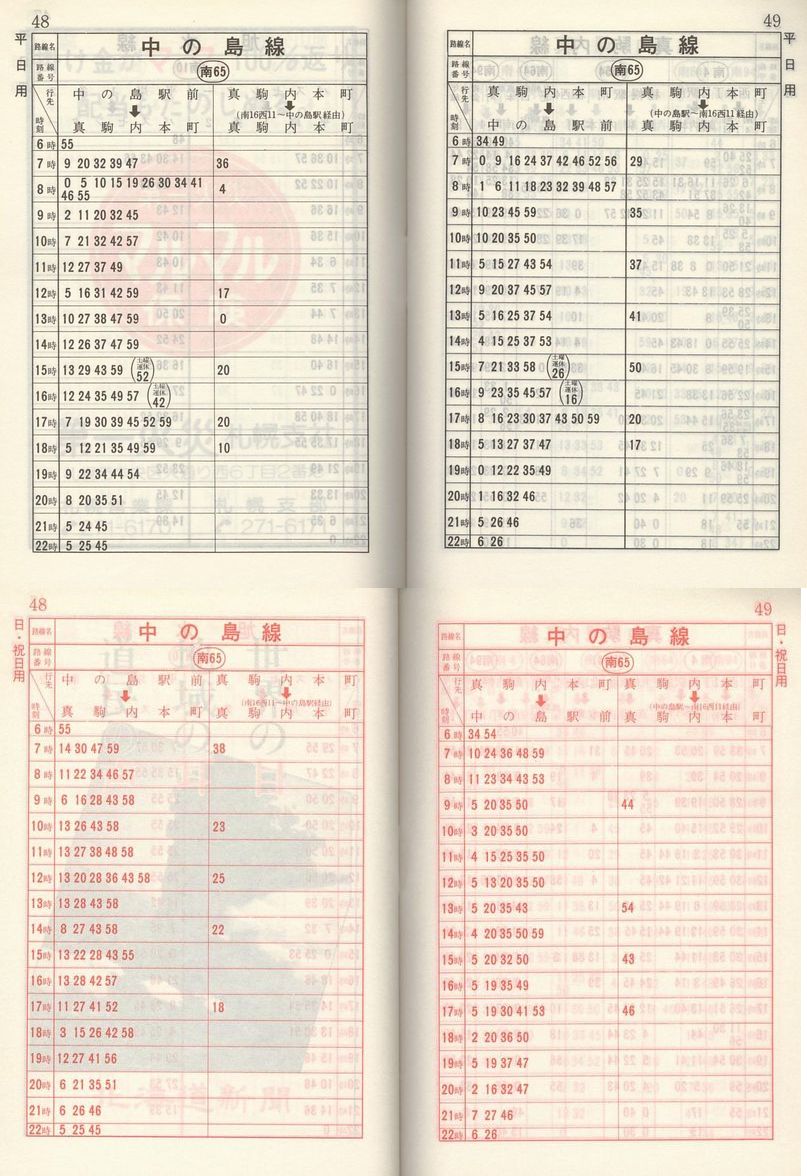 48
平日用
路線名 中の島線
路線番号 南65
行先 時刻
中の島駅前 ↓ 真駒内本町
真駒内本町 ↓ (南16西11～中の島駅経由) 真駒内本町
6時 55
7時 9 20 32 39 47 36
8時 0 5 10 15 19 26 30 34 41 4
46 55
9時 2 11 20 32 45
10時 7 21 32 42 57
11時 12 27 37 49
12時 5 16 31 42 59 17
13時 10 27 38 47 59 0
14時 12 26 37 47 59
15時 13 29 43 59 (土曜運休 52) 20
16時 12 24 35 49 57 (土曜運休 42)
17時 7 19 30 39 45 52 59 20
18時 5 12 21 35 49 59 10
19時 9 22 34 44 54
20時 8 20 35 51
21時 5 24 45
22時 5 25 45
49
平日用
路線名 中の島線
路線番号 南65
行先 時刻
真駒内本町 ↓ 中の島駅前
真駒内本町 ↓ (中の島駅～南16西11経由) 真駒内本町
6時 34 49
7時 0 9 16 24 37 42 46 52 56 29
8時 1 6 11 18 23 32 39 48 57
9時 10 23 45 59 35
10時 10 20 35 50
11時 5 15 27 43 54 37
12時 9 20 37 45 57
13時 5 16 25 37 54 41
14時 4 15 25 37 53
15時 7 21 33 58 (土曜運休 26) 50
16時 9 23 35 45 57 (土曜運休 16)
17時 8 16 23 30 37 43 50 59 20
18時 5 13 27 37 47 17
19時 0 12 22 35 49
20時 1 16 32 46
21時 5 26 46
22時 6 26
48
日・祝日用
路線名 中の島線
路線番号 南65
行先 時刻
中の島駅前 ↓ 真駒内本町
真駒内本町 ↓ (南16西11～中の島駅経由) 真駒内本町
6時 55
7時 14 30 47 59 38
8時 11 22 34 46 57
9時 6 16 28 43 58
10時 13 26 43 58 23
11時 13 27 38 48 58
12時 13 20 28 36 43 58 25
13時 13 28 43 58
14時 8 27 43 58 22
15時 13 22 28 43 55
16時 13 28 42 57
17時 11 27 41 52 18
18時 3 15 26 42 58
19時 12 27 41 56
20時 6 21 35 51
21時 6 26 46
22時 5 25 45
49
日・祝日用
路線名 中の島線
路線番号 南65
行先 時刻
真駒内本町 ↓ 中の島駅前
真駒内本町 ↓ (中の島駅～南16西11経由) 真駒内本町
6時 34 54
7時 10 24 36 48 59
8時 11 23 34 43 53
9時 5 20 35 50 44
10時 3 20 35 50
11時 4 15 25 35 50
12時 5 13 20 35 50
13時 5 20 35 43 54
14時 4 20 35 50 59
15時 5 20 32 50 43
16時 5 19 35 49
17時 5 19 30 41 53 46
18時 2 20 36 50
19時 5 19 37 47
20時 2 16 32 47
21時 7 27 46
22時 6 26